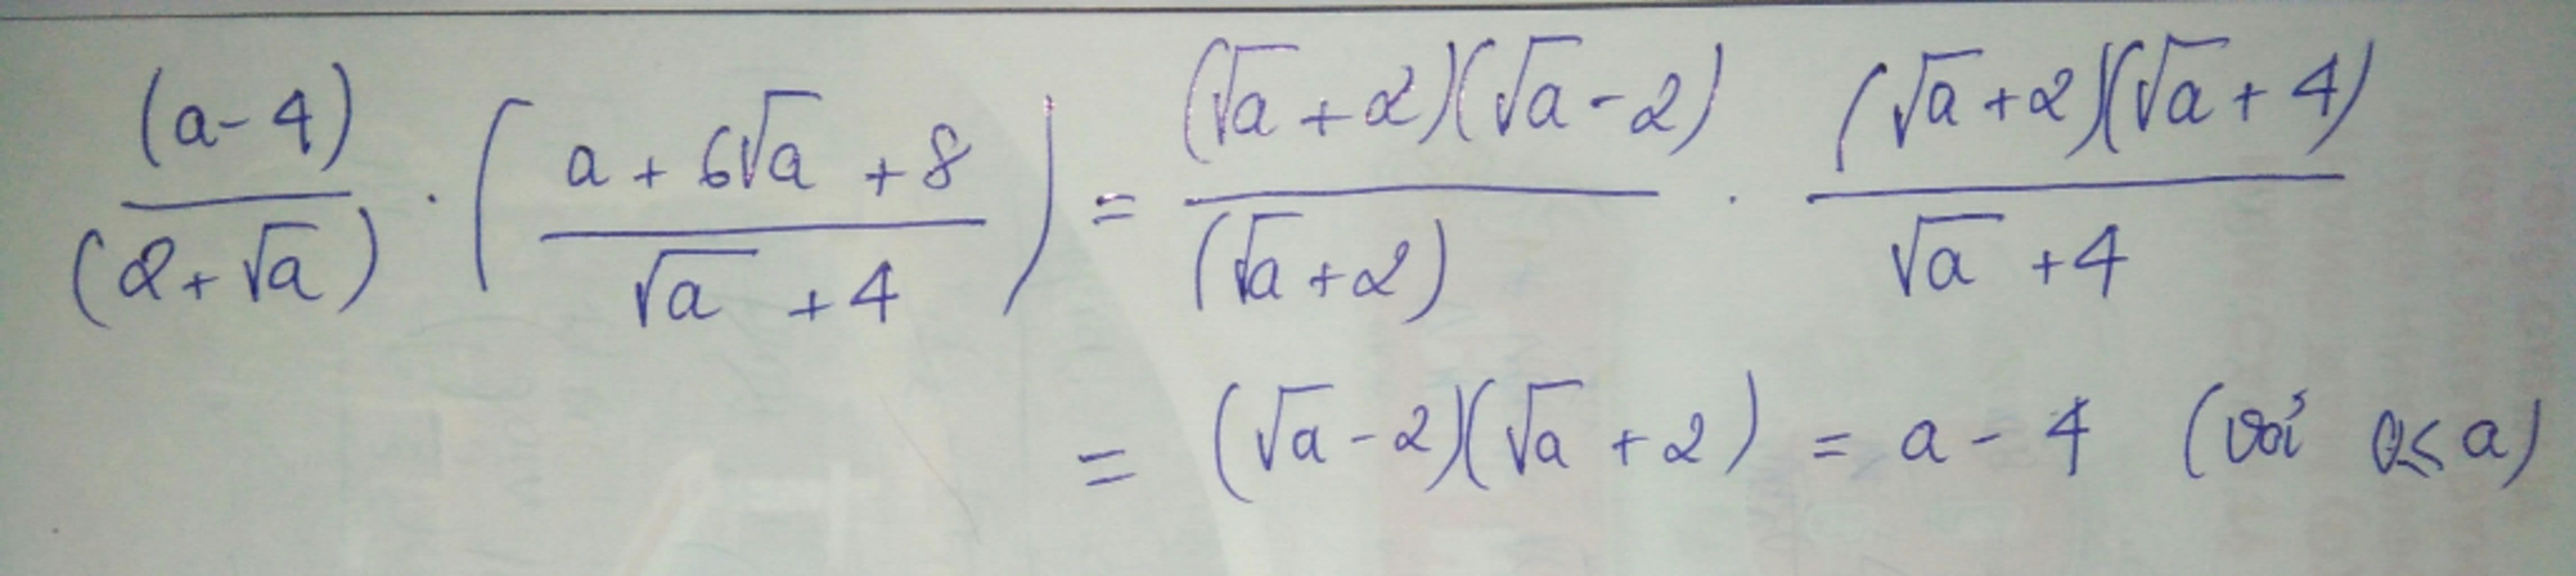 (a-4)/(2+√a) · ( (a+6√a+8)/(√a+4) ) = (√a+2)(√a-2)/(√a+2) · (√a+2)(√a+4)/(√a+4)
= (√a-2)(√a+2) = a-4 (với 0≤a)